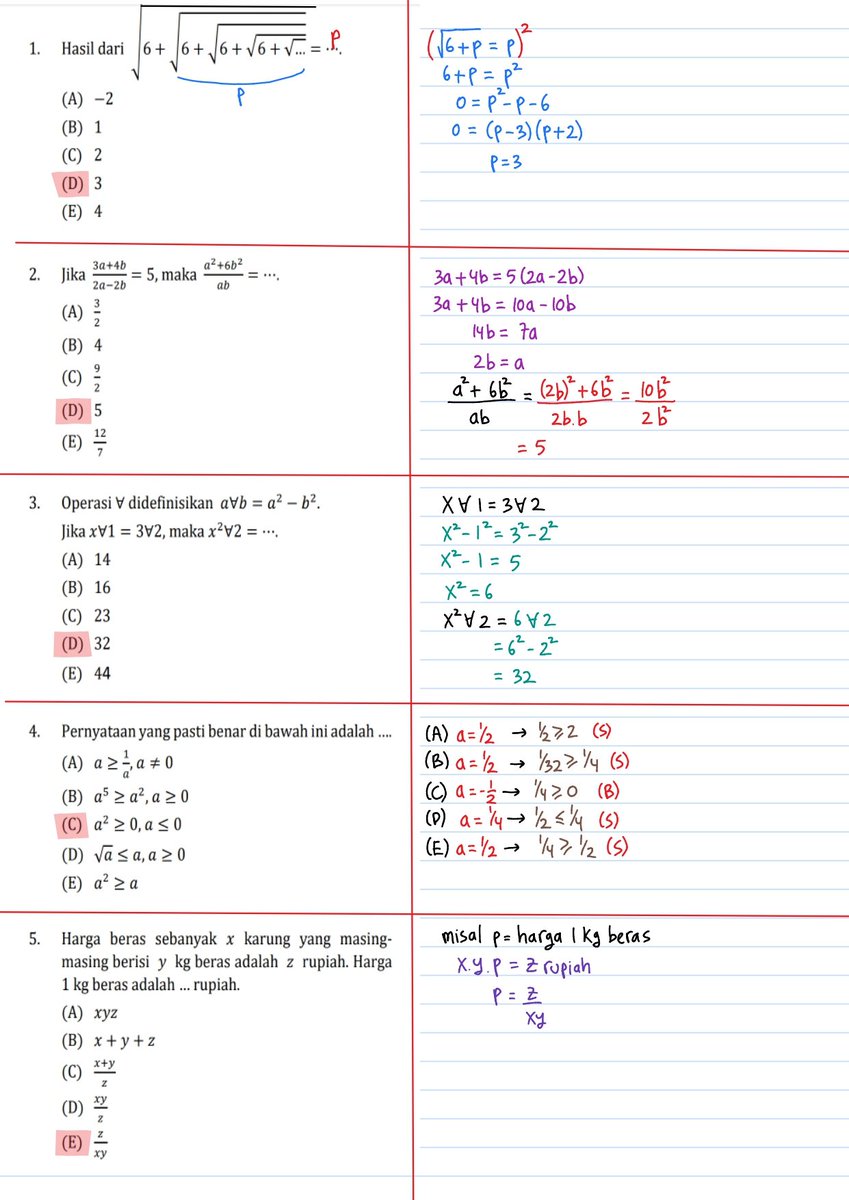 1. Hasil dari √(6 + √(6 + √(6 + √(6 + √...)))) = ⋯. P
P
(A) −2
(B) 1
(C) 2
(D) 3
(E) 4
(√6+p = p)²
6+p = p²
0 = p² - p - 6
0 = (p-3)(p+2)
p=3
2. Jika (3a+4b)/(2a−2b) = 5, maka (a²+6b²)/ab = ⋯.
(A) 3/2
(B) 4
(C) 9/2
(D) 5
(E) 12/7
3a+4b = 5(2a-2b)
3a+4b = 10a-10b
14b = 7a
2b = a
(a²+6b²)/ab = ((2b)²+6b²)/2b.b = 10b²/2b²
= 5
3. Operasi ∀ didefinisikan a∀b = a² − b².
Jika x∀1 = 3∀2, maka x²∀2 = ⋯.
(A) 14
(B) 16
(C) 23
(D) 32
(E) 44
x∀1 = 3∀2
x²-1² = 3²-2²
x²-1 = 5
x² = 6
x²∀2 = 6∀2
= 6²-2²
= 32
4. Pernyataan yang pasti benar di bawah ini adalah ....
(A) a ≥ 1/a, a ≠ 0
(B) a⁵ ≥ a², a ≥ 0
(C) a² ≥ 0, a ≤ 0
(D) √a ≤ a, a ≥ 0
(E) a² ≥ a
(A) a=1/2 → 1/2 ≥ 2 (S)
(B) a=1/2 → 1/32 ≥ 1/4 (S)
(C) a=-1/2 → 1/4 ≥ 0 (B)
(D) a=1/4 → 1/2 ≤ 1/4 (S)
(E) a=1/2 → 1/4 ≥ 1/2 (S)
5. Harga beras sebanyak x karung yang masing-
masing berisi y kg beras adalah z rupiah. Harga
1 kg beras adalah ... rupiah.
(A) xyz
(B) x + y + z
(C) (x+y)/z
(D) xy/z
(E) z/xy
misal p = harga 1 kg beras
x.y.p = z rupiah
p = z/xy